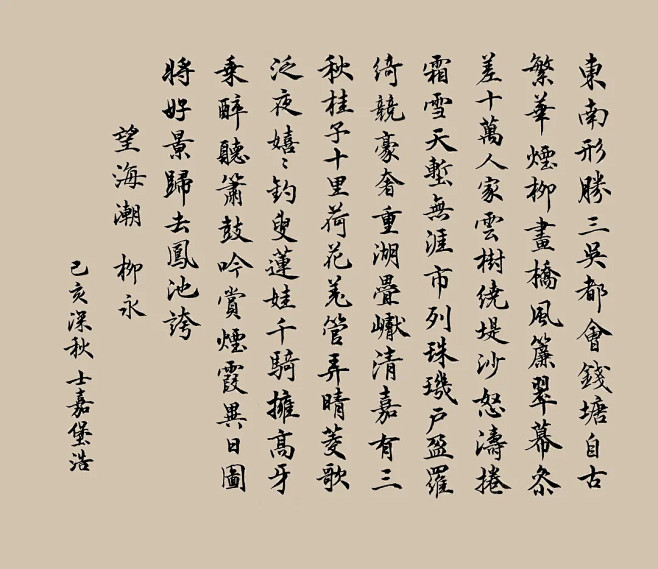 東南形勝三吳都會錢塘自古
繁華煙柳畫橋風簾翠幕參
差十萬人家雲樹繞堤沙怒濤捲
霜雪天塹無涯市列珠璣戶盈羅
綺競豪奢重湖疊巘清嘉有三
秋桂子十里荷花羌管弄晴菱歌
泛夜嬉〻釣叟蓮娃千騎擁高牙
乘醉聽簫鼓吟賞煙霞異日圖
將好景歸去鳳池誇
望海潮 柳永
己亥深秋 士嘉堡浩